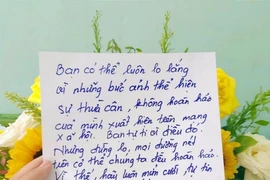 Bạn có thể luôn lo lắng
vì những bức ảnh thể hiện
sự thừa cân, không hoàn hảo
của mình xuất hiện trên mạng
xã hội. Bạn tự ti vì điều đó.
Nhưng đừng lo, mọi đường nét
trên cơ thể chúng ta đều hoàn hảo.
Vì thế, hãy luôn mỉm cười, tự tin